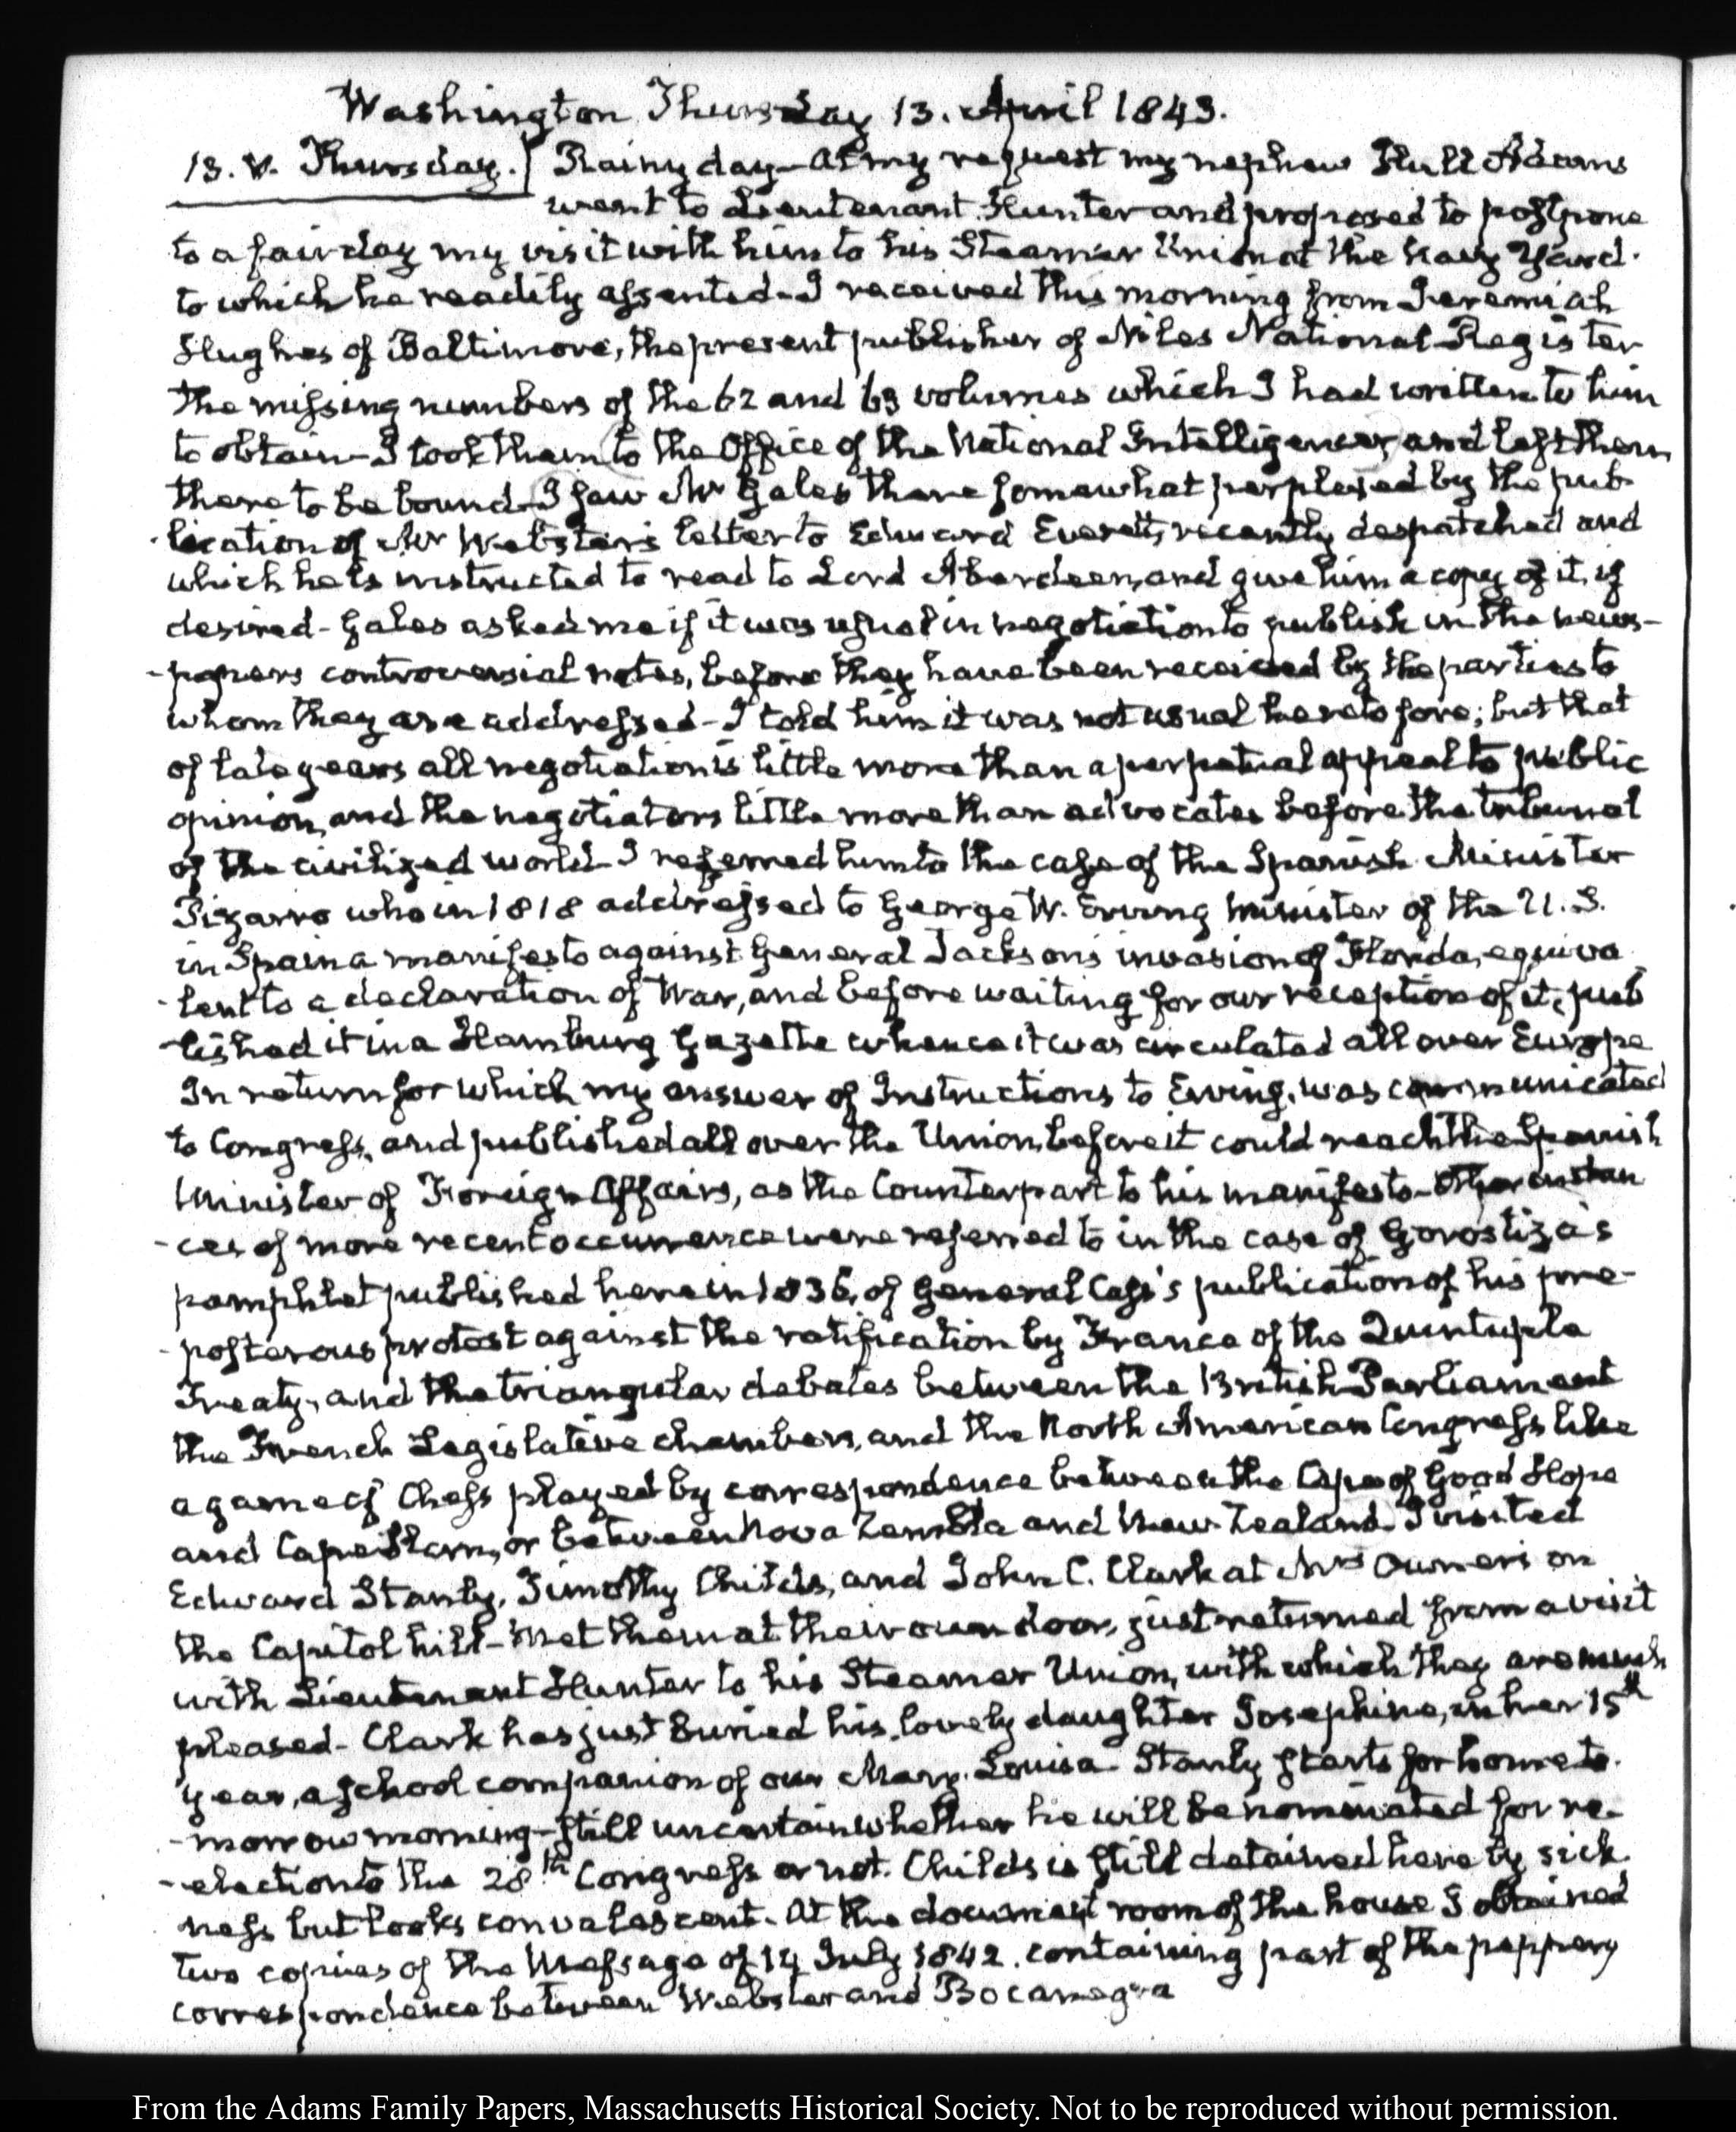 Washington Thursday 13. April 1843.
13. V. Thursday. Rainy day – At my request my nephew Hull Adams
went to Lieutenant Hunter and proposed to postpone
to a fair day my visit with him to his Steamer Union at the Navy Yard.
to which he readily assented – I received this morning from Jeremiah
Hughes of Baltimore, the present publisher of Niles National Register
the missing numbers of the 62 and 63 volumes which I had written to him
to obtain – I took them to the Office of the National Intelligencer, and left them
there to be bound – I saw Mr Gales there somewhat perplexed by the pub
lication of Mr Webster's letter to Edward Everett, recently despatched and
which he is instructed to read to Lord Aberdeen, and give him a copy of it, if
desired – Gales asked me if it was usual in negotiation to publish in the news-
-papers controversial notes, before they have been received by the parties to
whom they are addressed – I told him it was not usual heretofore; but that
of late years all negotiation is little more than a perpetual appeal to public
opinion, and the negotiators little more than advocates before the tribunal
of the civilized world – I referred him to the case of the Spanish Minister
Pizarro who in 1818 addressed to George W. Erving Minister of the U.S.
in Spain a manifesto against General Jackson's invasion of Florida, equiva
-lent to a declaration of War, and before waiting for our reception of it, pub
-lished it in a Hamburg Gazette whence it was circulated all over Europe
In return for which my answer of Instructions to Erving, was communicated
to Congress, and published all over the Union, before it could reach the Spanish
Minister of Foreign Affairs, as the Counterpart to his manifesto – Other instan
-ces of more recent occurrence were referred to in the case of Gorostiza's
pamphlet published here in 1836, of General Cass's publication of his pre-
-posterous protest against the ratification by France of the Quintuple
Treaty, and the triangular debates between the British Parliament
the French Legislative chambers, and the North American Congress like
a game of Chess played by correspondence between the Cape of Good Hope
and Cape Horn, or between Nova Zembla and New-Zealand. I visited
Edward Stanly, Timothy Childs, and John C. Clark at Mrs Owner's on
the Capitol hill – Met them at their own door, just returned from a visit
with Lieutenant Hunter to his Steamer Union, with which they are much
pleased – Clark has just buried his lovely daughter Josephine, in her 15th
year, a school companion of our Mary Louisa – Stanly starts for home to.
-morrow morning – still uncertain whether he will be nominated for re-
-election to the 28th Congress or not. Childs is still detained here by sick
ness but looks convalescent – At the document room of the house I obtained
two copies of the Message of 14 July 1842. containing part of the peppery
correspondence between Webster and Bocanegra
From the Adams Family Papers, Massachusetts Historical Society. Not to be reproduced without permission.